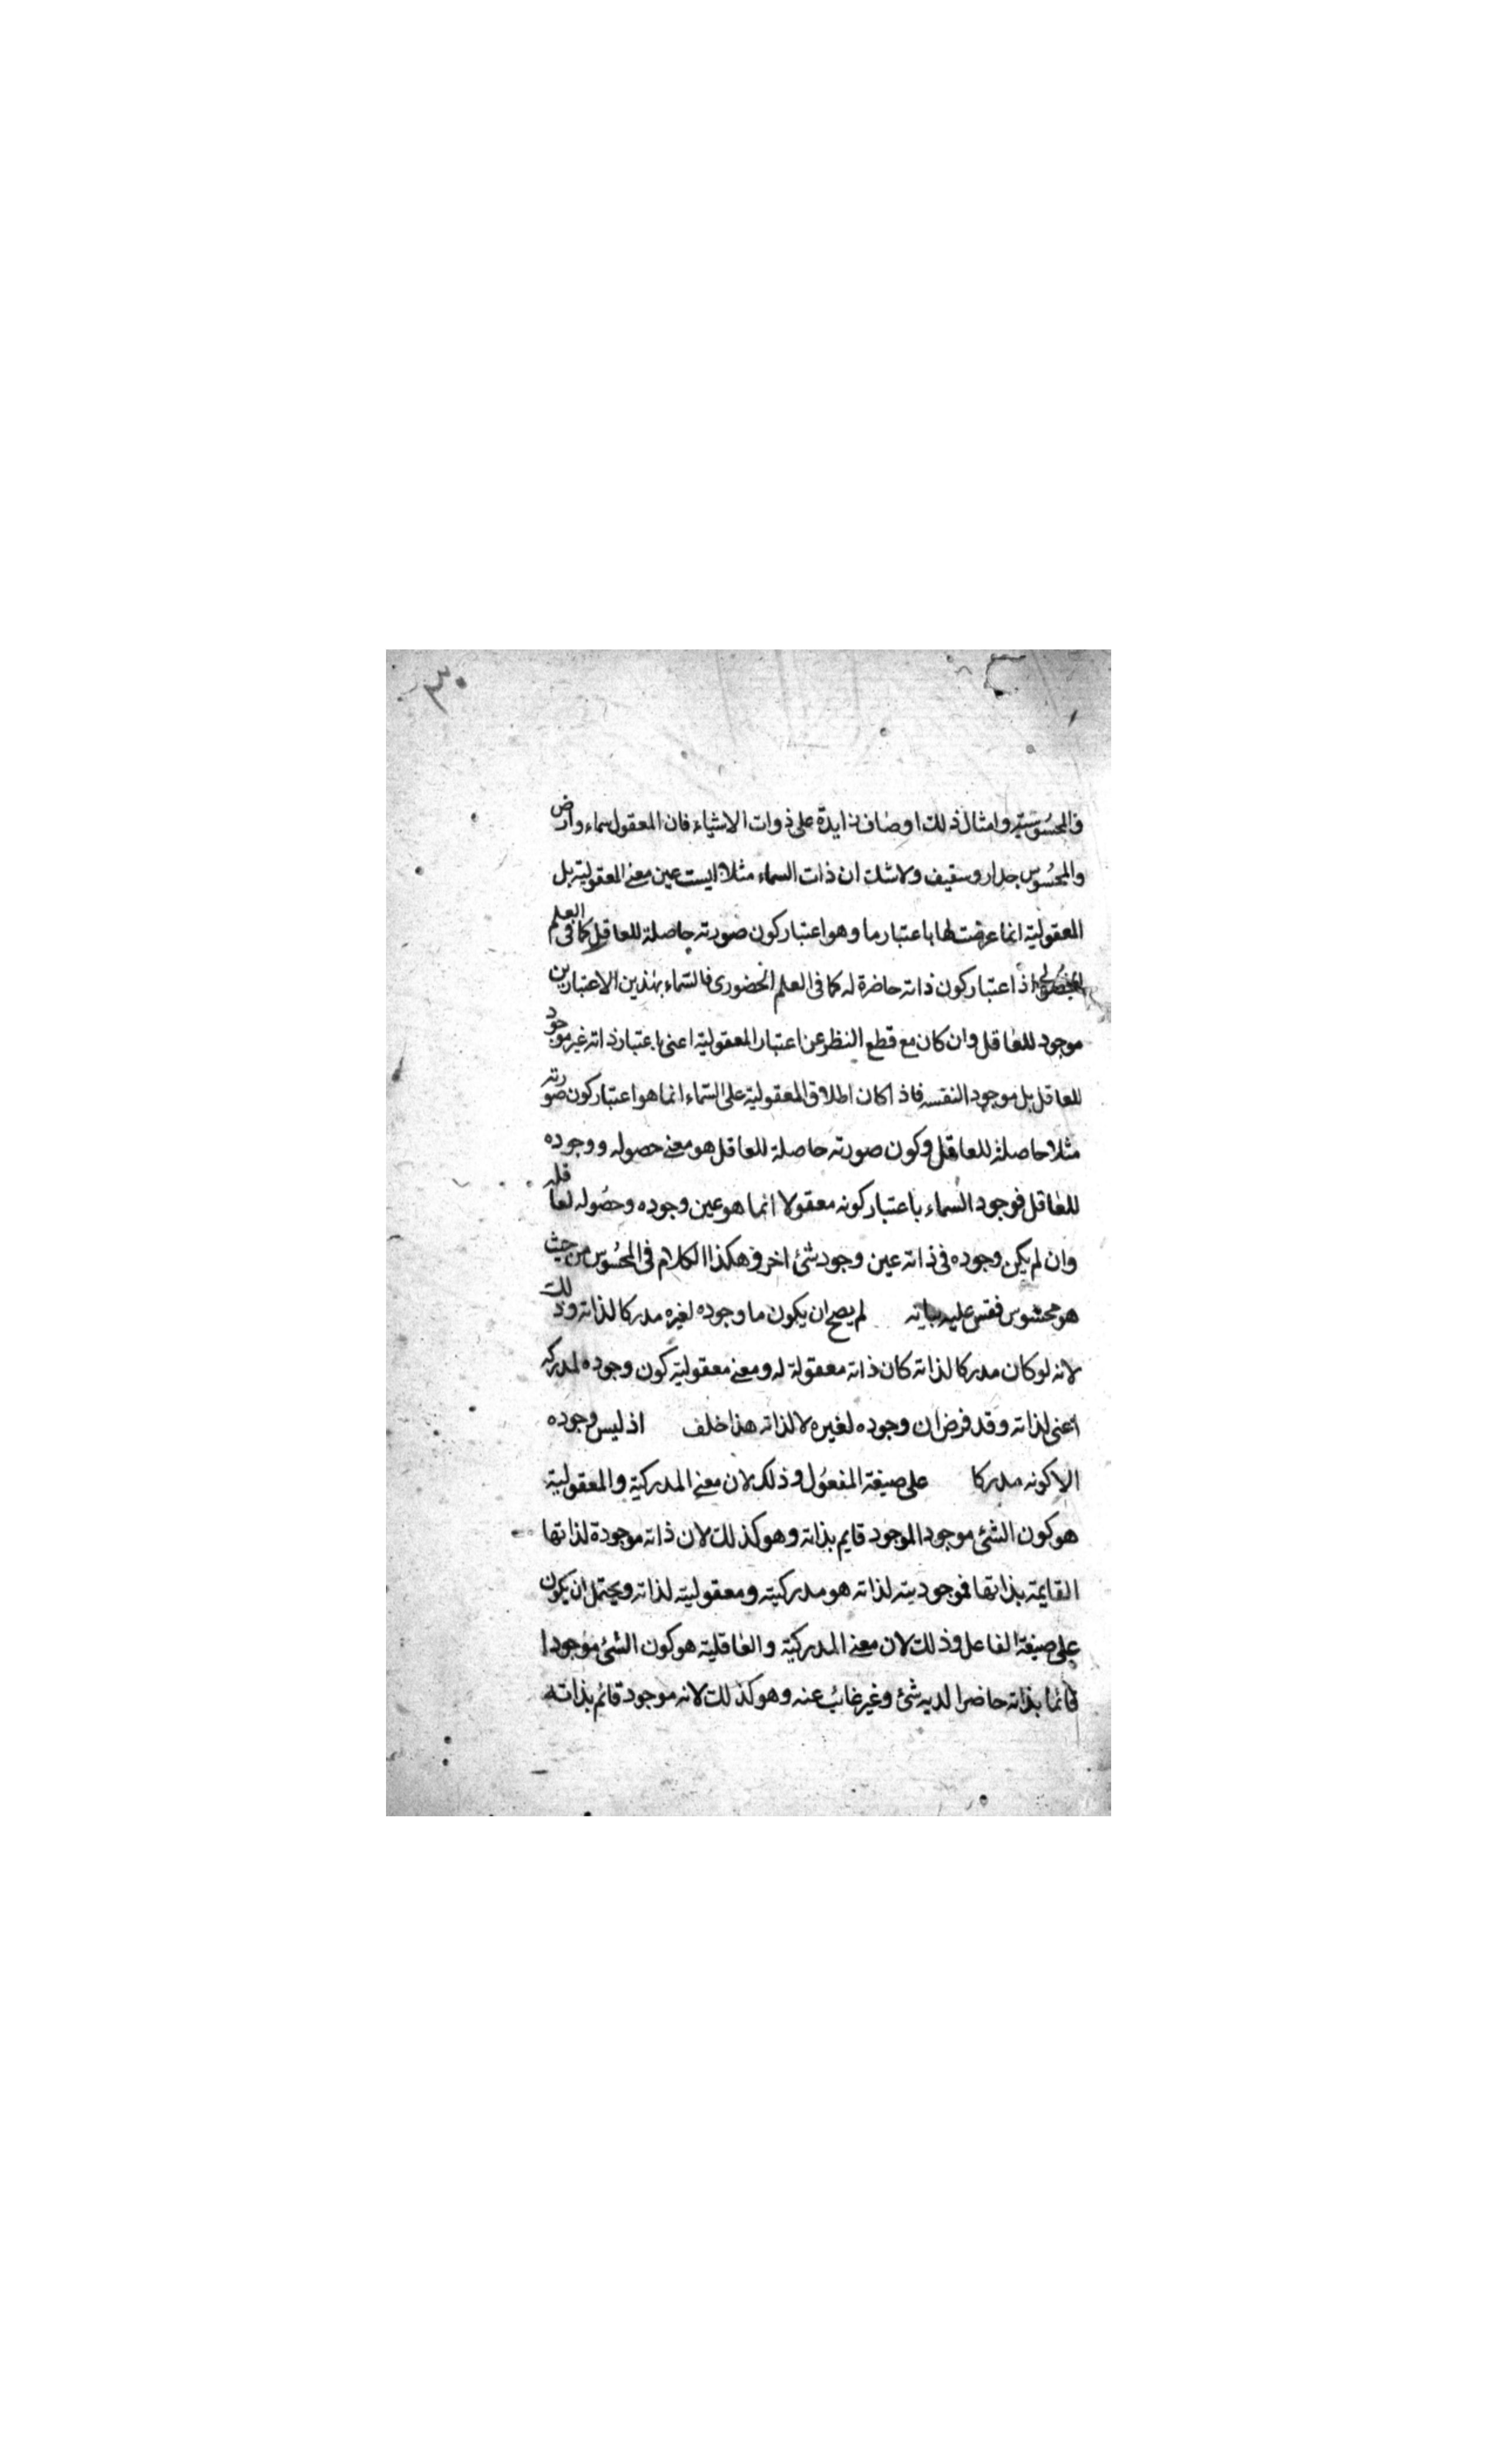 ٣٠
والمحسوسية وامثال ذلك اوصاف زايدة على ذوات الاشياء فان المعقول سماء وارض
والمحسوس جدار وسقيف ولا شك ان ذات السماء مثلا ليست عين معنى المعقولية بل
المعقولية انما عرضت لها باعتبار ما وهو اعتبار كون صورته حاصلة للعاقل كما فى العلم
الحصولى اذ اعتبار كون ذاته حاضرة له كما فى العلم الحضورى فالسماء بهذين الاعتبارين
موجود للعاقل وان كان مع قطع النظر عن اعتبار المعقولية اعنى باعتبار ذاته غير موجود
للعاقل بل موجود النفسه فاذا كان اطلاق المعقولية على السماء انما هو اعتبار كون صورته
مثلا حاصلة للعاقل وكون صورته حاصلة للعاقل هو معنى حصوله ووجوده
للعاقل فوجود السماء باعتبار كونه معقولا انما هو عين وجوده وحصوله لعاقله
وان لم يكن وجوده فى ذاته عين وجود شئ اخر وهكذا الكلام فى المحسوس من حيث
هو محسوس فقس عليه بيانه لم يصح ان يكون ما وجوده لغيره مدركا لذاته وذلك
لانه لو كان مدركا لذاته كان ذاته معقولة له ومعنى معقولية كون وجوده لمدركه
اعنى لذاته وقد فرض ان وجوده لغيره لا لذاته هذا خلف اذ ليس وجوده
الا كونه مدركا على صيغة المفعول وذلك لان معنى المدركية والمعقولية
هو كون الشئ موجود الموجود قايم بذاته وهو كذلك لان ذاته موجودة لذاتها
القايمة بذاتها فموجوديته لذاته هو مدركيته ومعقوليته لذاته ويحتمل ان يكون
على صيغة الفاعل وذلك لان معنى المدركية والعاقلية هو كون الشئ موجودا
قائما بذاته حاضرا لديه شئ وغير غائب عنه وهو كذلك لانه موجود قائم بذاته